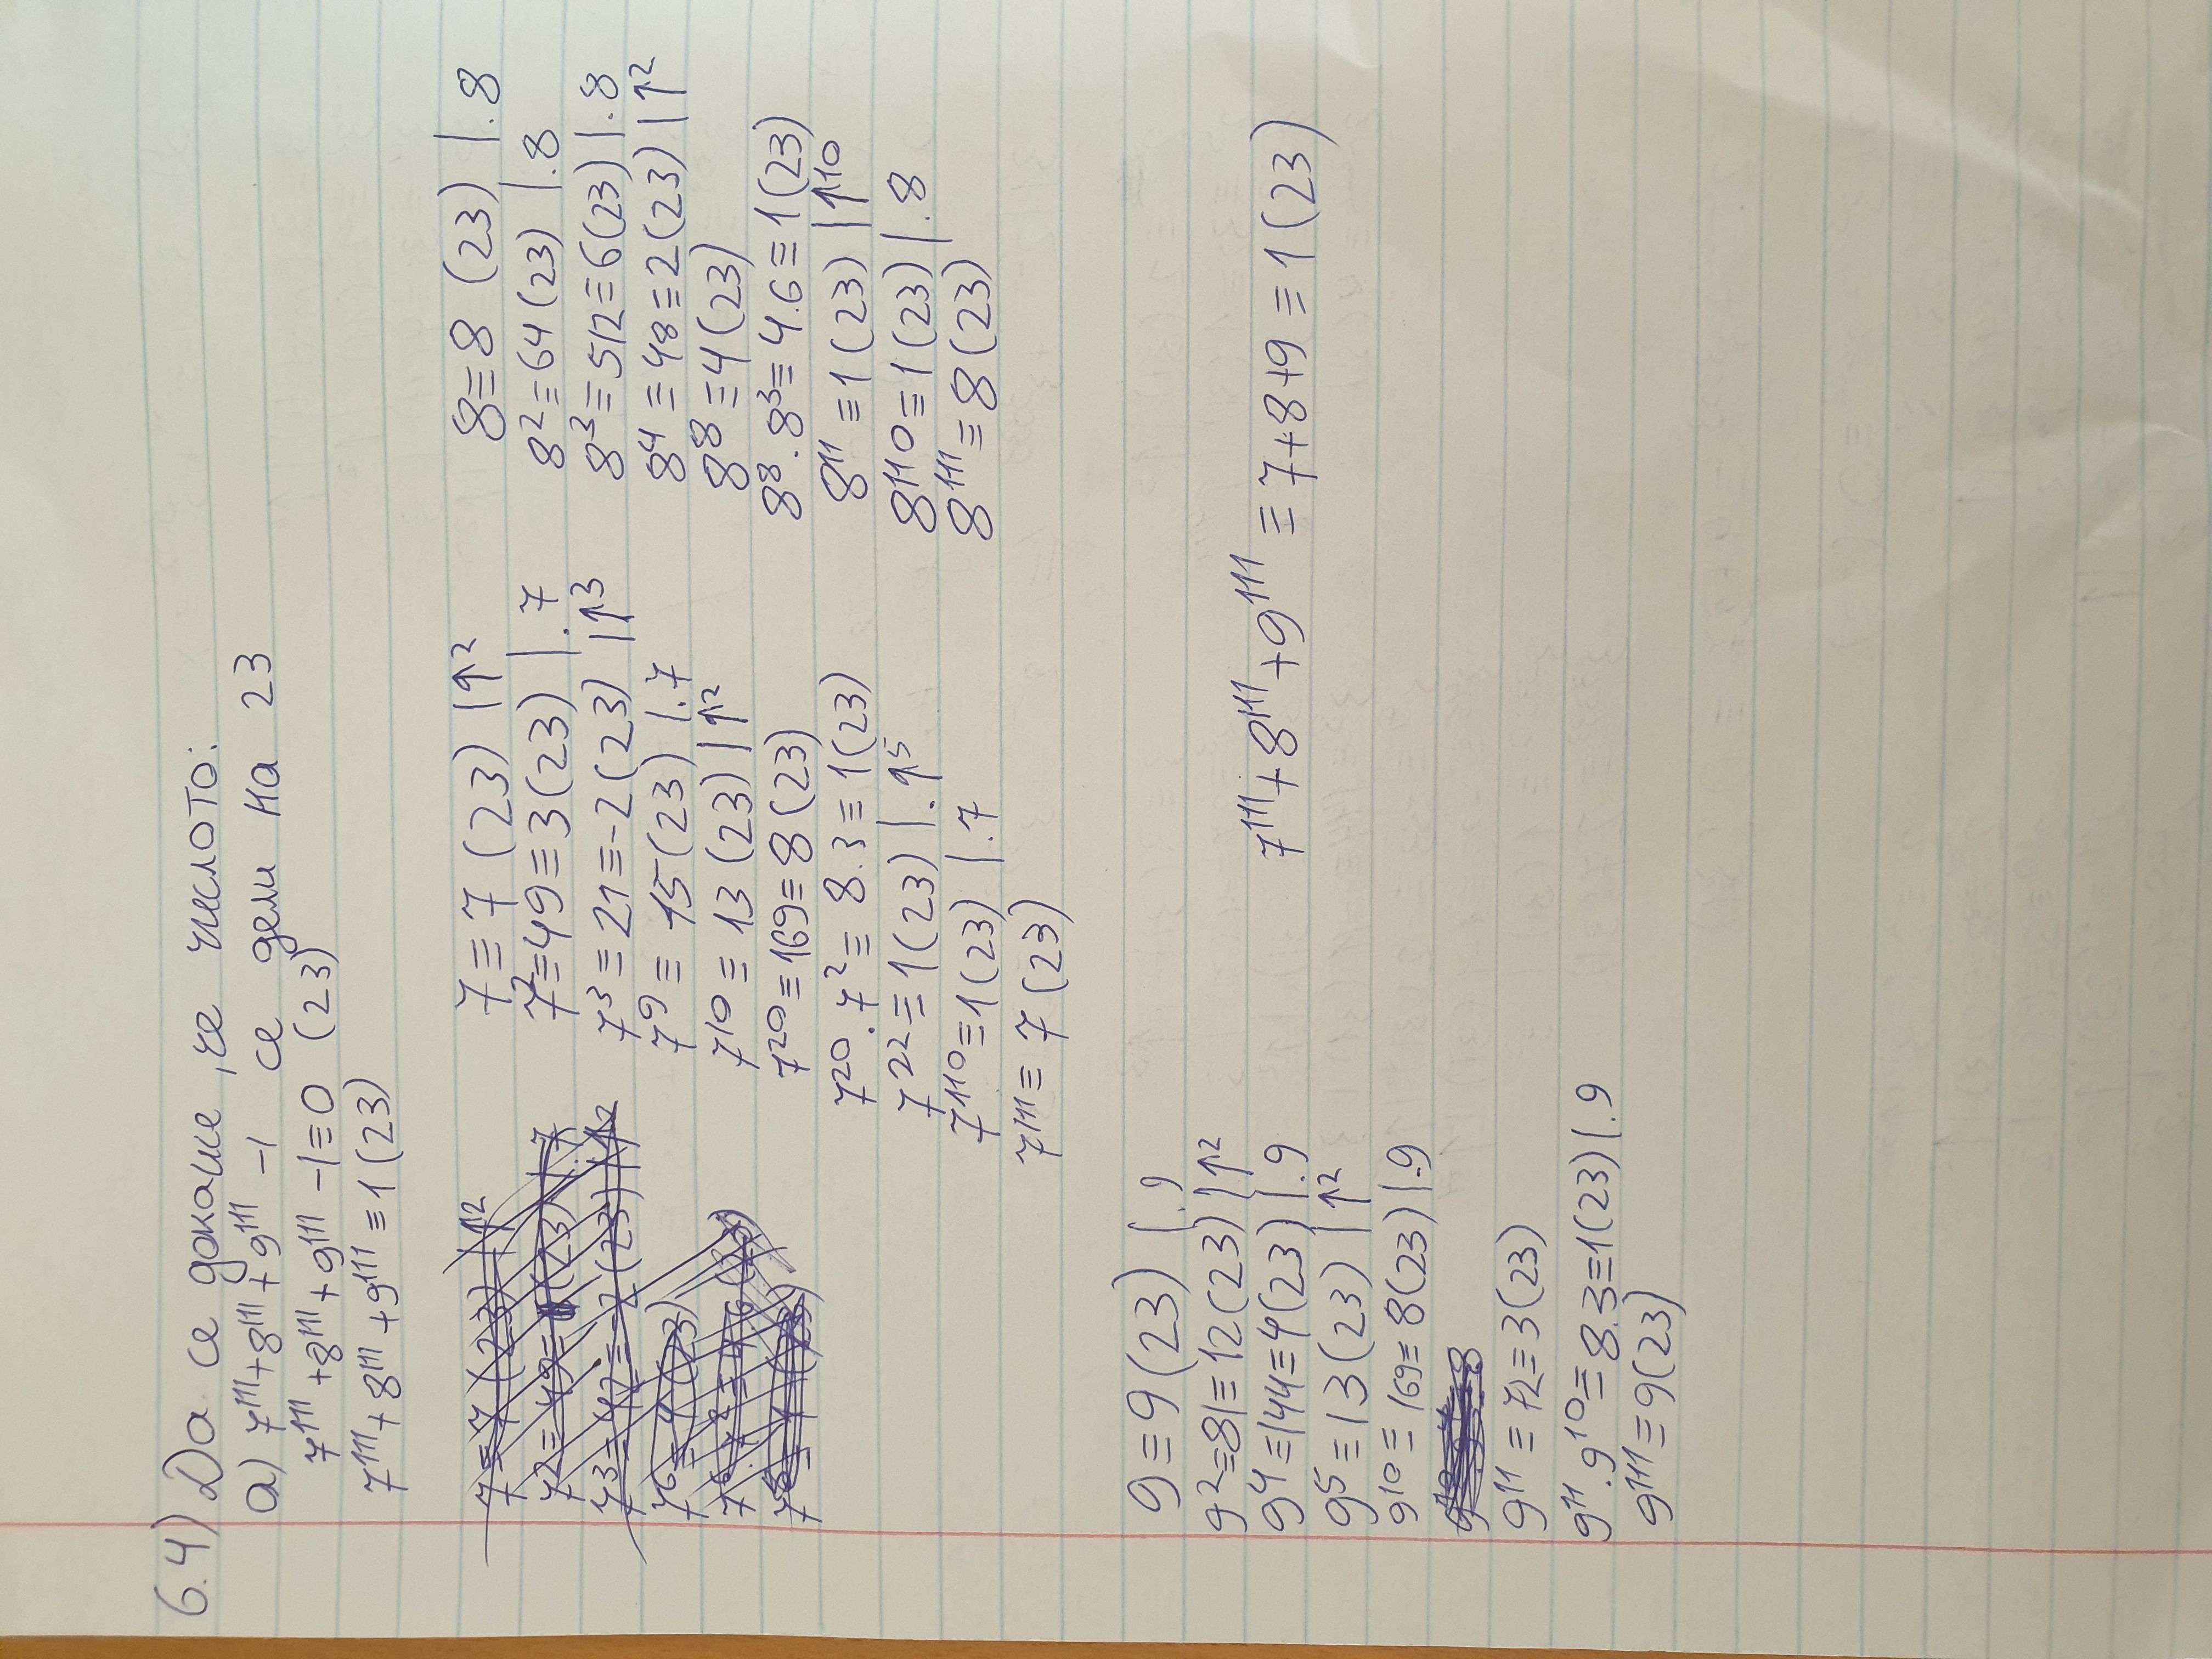 6.4) Да се докаже, че числото:
а) 7¹¹¹+8¹¹¹+9¹¹¹ -1 се дели на 23
7¹¹¹+8¹¹¹+9¹¹¹ -1≡0 (23)
7¹¹¹+8¹¹¹+9¹¹¹ ≡1(23)
7≡7(23) |↑²
7²≡49≡3(23) |.7
7³≡21≡-2(23) |↑³
7⁹≡15(23) |.7
7¹⁰≡13(23) |↑²
7²⁰≡169≡8(23)
7²⁰.7²≡8.3≡1(23)
7²²≡1(23) |.↑⁵
7¹¹⁰≡1(23) |.7
7¹¹¹≡7(23)
8≡8(23) |.8
8²≡64(23) |.8
8³≡512≡6(23) |.8
8⁴≡48≡2(23) |↑²
8⁸≡4(23)
8⁸.8³≡4.6≡1(23)
8¹¹≡1(23) |↑¹⁰
8¹¹⁰≡1(23) |.8
8¹¹¹≡8(23)
9≡9(23) |.9
9²≡81≡12(23) |↑²
9⁴≡144≡4(23) |.9
9⁵≡13(23) |↑²
9¹⁰≡169≡8(23) |.9
9¹¹≡72≡3(23)
9¹¹.9¹⁰≡8.3≡1(23) |.9
9¹¹¹≡9(23)
7¹¹¹+8¹¹¹+9¹¹¹≡7+8+9≡1(23)